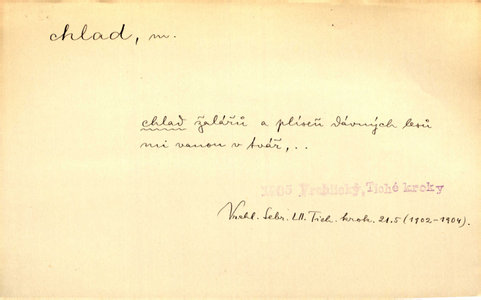 chlad, m.
chlad žalářů a plíseň dávných lesů
mi vanou v tvář,..
Vrchlický, Tiché kroky
Vrchl. Sebr. LII. Tich. krok. 21.5 (1902-1904).